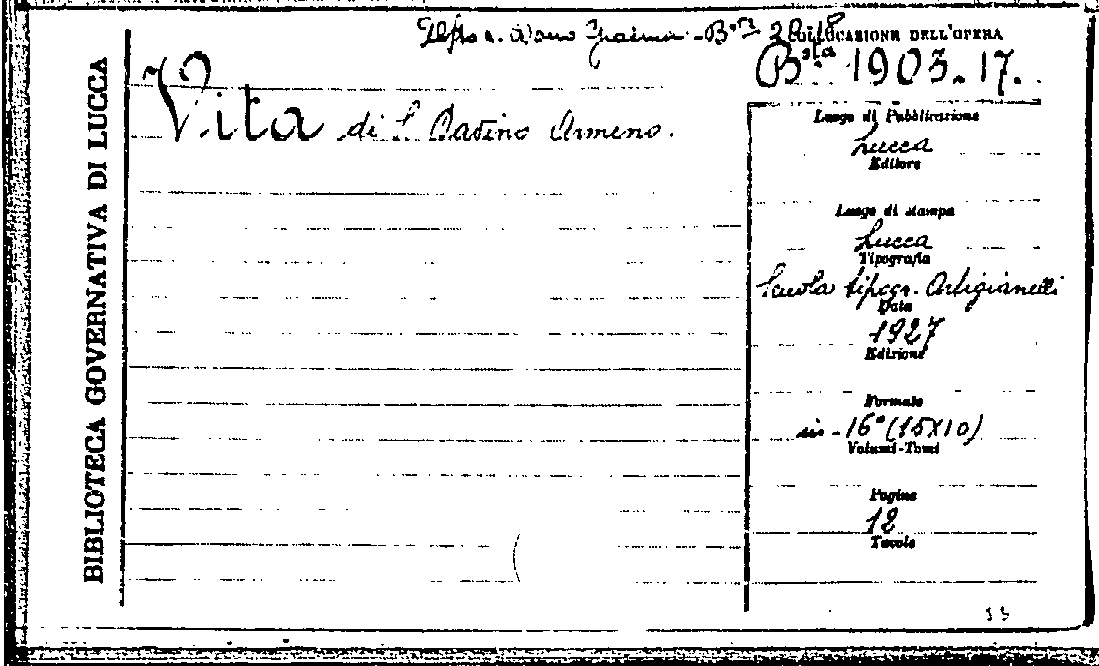 BIBLIOTECA GOVERNATIVA DI LUCCA
COLLOCAZIONE DELL'OPERA
B.sta 1903.17.
Vita di S. Davino Armeno.
Luogo di Pubblicazione
Lucca
Editore
Luogo di stampa
Lucca
Tipografia
Scuola tipogr. Artigianelli
Data
1927
Edizione
Formato
in-16° (15X10)
Volumi-Tomi
Pagine
12
Tavole